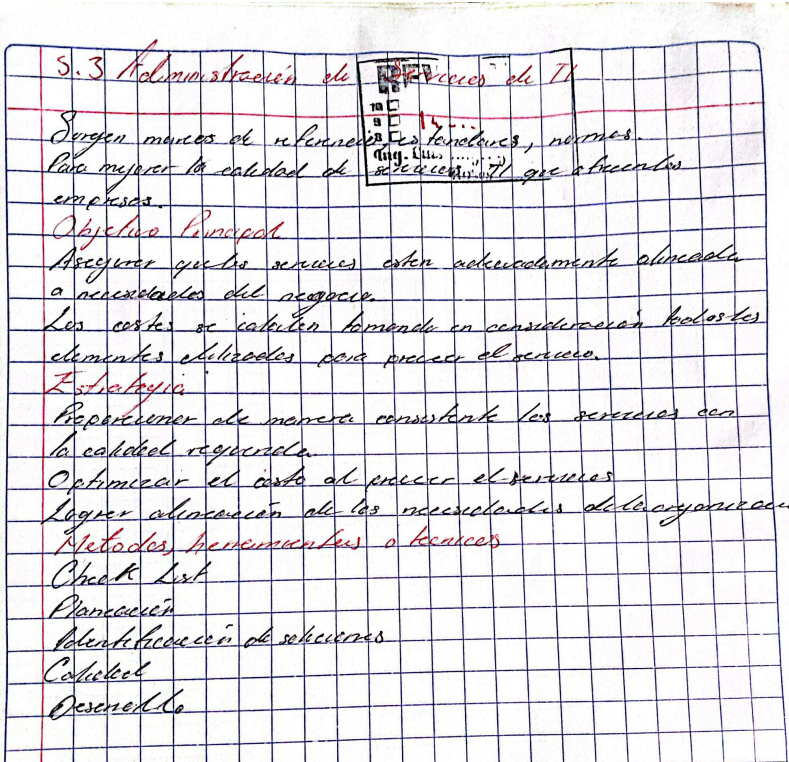 5.3 Administración de Servicios de TI
REV
10
9
8
Ing. Luis
Surgen marcos de referencia, estandares, normas.
Para mejorar la calidad de servicios TI que ofrecen las
empresas.
Objetivo Principal
Asegurar que los servicios esten adecuadamente alineada
a necesidades del negocio.
Los costes se calculen tomando en consideración todos los
elementos utilizados para proveer el servicio.
Estrategia
Proporcionar de manera consistente los servicios con
la calidad requerida.
Optimizar el costo al proveer el servicios
Lograr alineación de las necesidades de la organizacion
Metodos, herramientas o tecnicas
Check List
Planeación
Identificación de soluciones
Calidad
Desarrollo